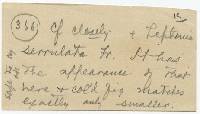 15
(336) Cf closely & Leptonia
serrulata Fr. It has
the appearance of that
here & cold fog matches
exactly only smaller.